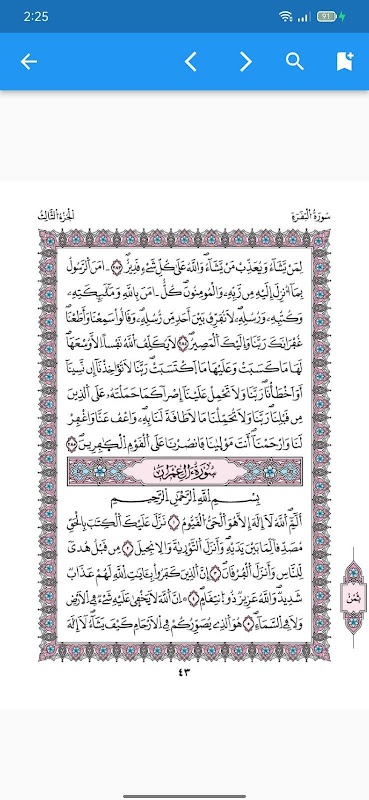 2:25
91
سُورَةُ الْبَقَرَةِ
الْجُزْءُ الثَّالِثُ
لِمَنْ يَّشَآءُ وَيُعَذِّبُ مَنْ يَّشَآءُ وَاللَّهُ عَلَىٰ كُلِّ شَيْءٍ قَدِيرٌ ءَامَنَ الرَّسُولُ
بِمَآ أُنزِلَ إِلَيْهِ مِن رَّبِّهِۦ وَالْمُومِنُونَ كُلٌّ ـامَنَ بِاللَّهِ وَمَلَٰٓئِكَتِهِۦ
وَكُتُبِهِۦ وَرُسُلِهِۦ لَا نُفَرِّقُ بَيْنَ أَحَدٍ مِّن رُّسُلِهِۦ وَقَالُوا سَمِعْنَا وَأَطَعْنَا
غُفْرَانَكَ رَبَّنَا وَإِلَيْكَ الْمَصِيرُ لَا يُكَلِّفُ اللَّهُ نَفْسًا اِلَّا وُسْعَهَا
لَهَا مَا كَسَبَتْ وَعَلَيْهَا مَا اَكْتَسَبَتْ رَبَّنَا لَا تُوَاخِذْنَآ إِن نَّسِينَآ
أَوَ اَخْطَأْنَا رَبَّنَا وَلَا تَحْمِلْ عَلَيْنَآ إِصْرًا كَمَا حَمَلْتَهُۥ عَلَى الَّذِينَ
مِن قَبْلِنَا رَبَّنَا وَلَا تُحَمِّلْنَا مَا لَا طَاقَةَ لَنَا بِهِۦ وَاعْفُ عَنَّا وَاغْفِرْ
لَنَا وَارْحَمْنَآ أَنتَ مَوْلَىٰنَا فَانصُرْنَا عَلَى الْقَوْمِ الْكَٰفِرِينَ
سُورَةُ ءَالِ عِمْرَانَ
بِسْمِ اللَّهِ الرَّحْمَٰنِ الرَّحِيمِ
أَلَٓمِّٓ اللَّهُ لَآ إِلَٰهَ إِلَّا هُوَ الْحَيُّ الْقَيُّومُ ١ نَزَّلَ عَلَيْكَ الْكِتَٰبَ بِالْحَقِّ
مُصَدِّقًا لِّمَا بَيْنَ يَدَيْهِ وَأَنزَلَ التَّوْرَىٰةَ وَالِانجِيلَ ٢ مِن قَبْلُ هُدًى
لِّلنَّاسِ وَأَنزَلَ الْفُرْقَانَ ٣ إِنَّ الَّذِينَ كَفَرُوا بِـَٔايَٰتِ اللَّهِ لَهُمْ عَذَابٌ
شَدِيدٌ وَاللَّهُ عَزِيزٌ ذُو اِنتِقَامٍ ٤ اِنَّ اللَّهَ لَا يَخْفَىٰ عَلَيْهِ شَيْءٌ فِي الْأَرْضِ
وَلَا فِي السَّمَآءِ ٥ هُوَ الَّذِي يُصَوِّرُكُمْ فِي الْأَرْحَامِ كَيْفَ يَشَآءُ لَآ إِلَٰهَ
ثُمُنٌ
٤٣